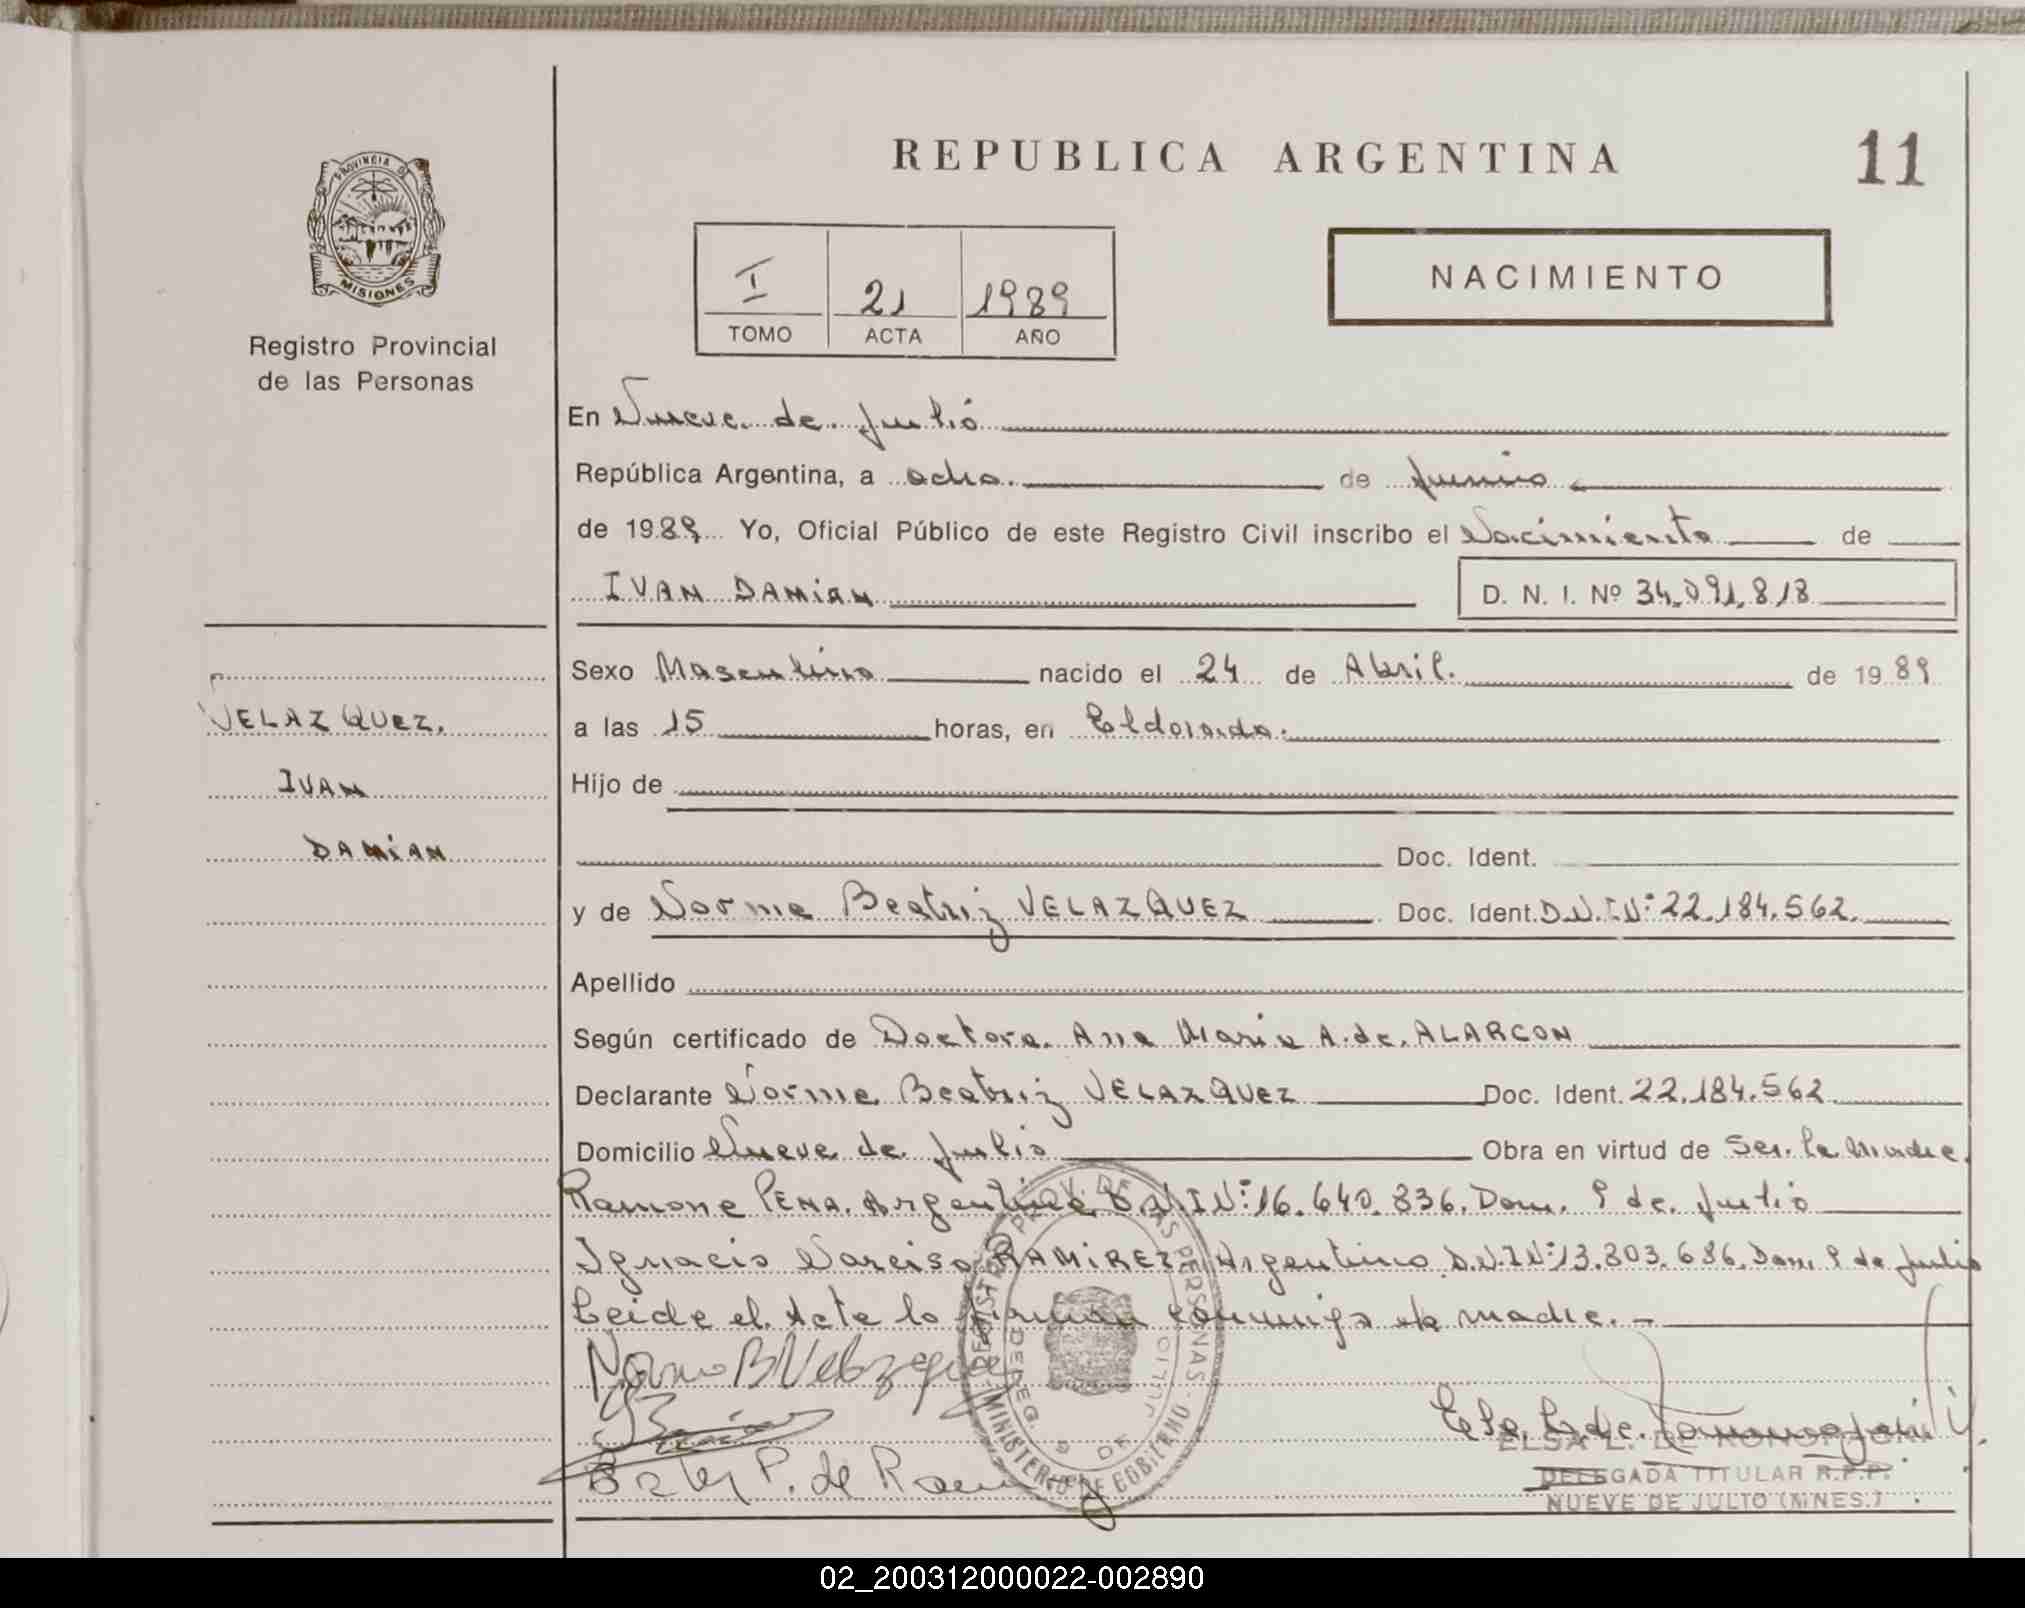 REPUBLICA ARGENTINA
11
PROVINCIA DE
MISIONES
Registro Provincial
de las Personas
I 21 1989
TOMO ACTA AÑO
NACIMIENTO
En Nueve de Julio
República Argentina, a ocho de Junio
de 1989 Yo, Oficial Público de este Registro Civil inscribo el Nacimiento de
IVAN DAMIAN D. N. I. Nº 34.091.818
Sexo Masculino nacido el 24 de Abril. de 1989
VELAZQUEZ.
a las 15 horas, en Eldorado.
IVAN
Hijo de
DAMIAN
Doc. Ident.
y de Norma Beatriz VELAZQUEZ Doc. Ident. D.N.I Nº 22.184.562.
Apellido
Según certificado de Doctora Ana Maria A. de ALARCON
Declarante Norma Beatriz VELAZQUEZ Doc. Ident. 22.184.562
Domicilio Nueve de Julio Obra en virtud de Ser la Madre.
Ramona PENA. Argentina D.N.I Nº 16.640.836. Dom. 9 de Julio
Ignacio Narciso RAMIREZ Argentino D.N.I Nº 13.803.686. Dom. 9 de Julio
Leida el Acta lo firman conmigo la madre.-
Norma B Velazquez
P. de
ELSA L. DE
DELEGADA TITULAR R.P.P.
NUEVE DE JULIO (MNES.)
REGISTRO PROV. DE LAS PERSONAS
MINISTERIO DE GOBIERNO
9 DE JULIO
02_200312000022-002890